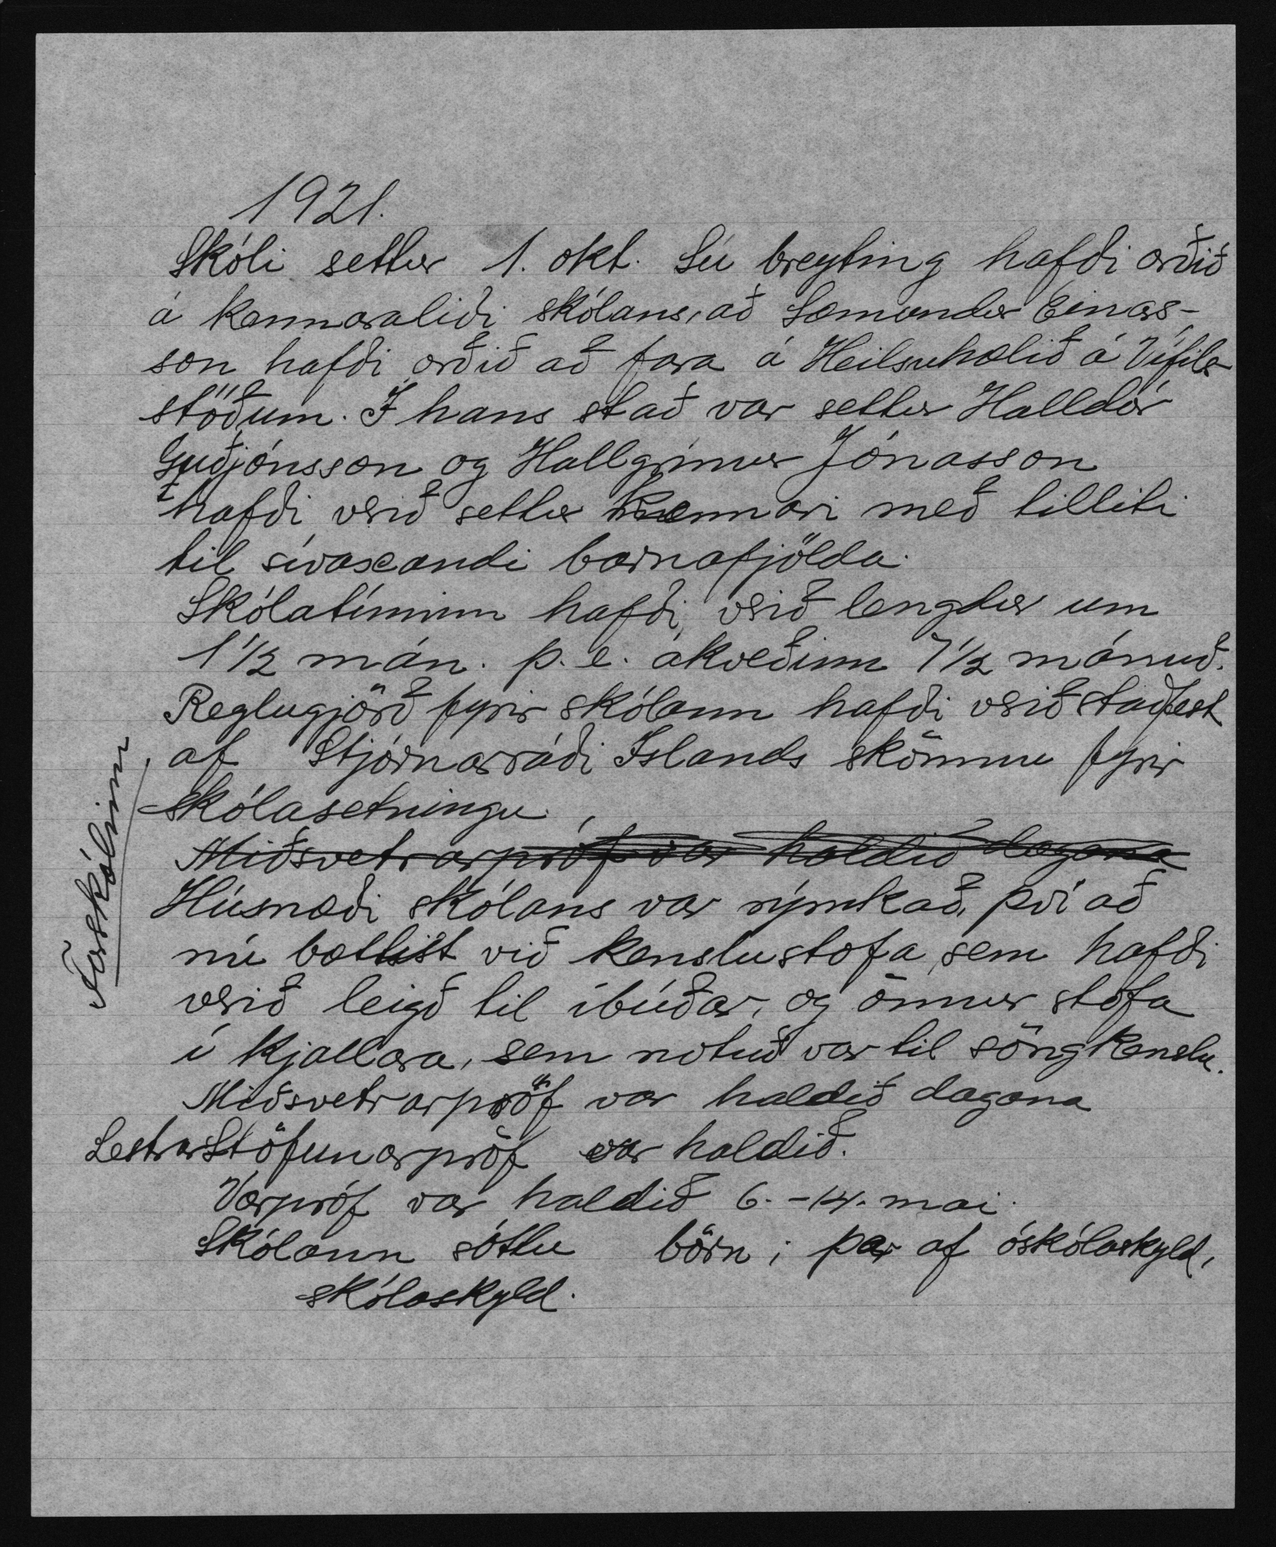 1921.
Skóli settur 1. okt. Sú breyting hafði orðið
á kennaraliði skólans, að Sæmundur Einars-
son hafði orðið að fara á Heilsuhælið á Vífils
stöðum. Í hans stað var settur Halldór
Guðjónsson og Hallgrímur Jónasson
hafði verið settur kennari með tilliti
til sívaxandi barnafjölda.
Skólatíminn hafði verið lengdur um
1 1/2 mán. þ. e. ákveðinn 7 1/2 mánuð.
Reglugjörð fyrir skólann hafði verið staðfest
af Stjórnarráði Íslands skömmu fyrir
skólasetningu.
Miðsvetrarpróf var haldið dagana
Húsnæði skólans var rýmkað, því að
nú bættist við kenslustofa, sem hafði
verið leigð til íbúðar, og önnur stofa
í kjallara, sem notuð var til söngkenslu.
Miðsvetrarpróf var haldið dagana
Lestrar Stöfunarpróf var haldið.
Vorpróf var haldið 6. - 14. mai.
Skólann sóttu börn; þar af óskólaskyld,
skólaskyld.
Forskólinn